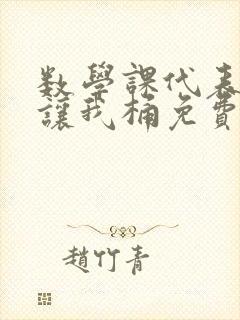 數學課代表
讓我桶免費
趙竹青